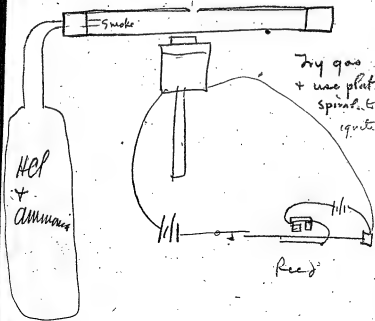 Smoke
Try gas
+ use plat
spiral to
ignite
HCl
+
ammonia
Reed